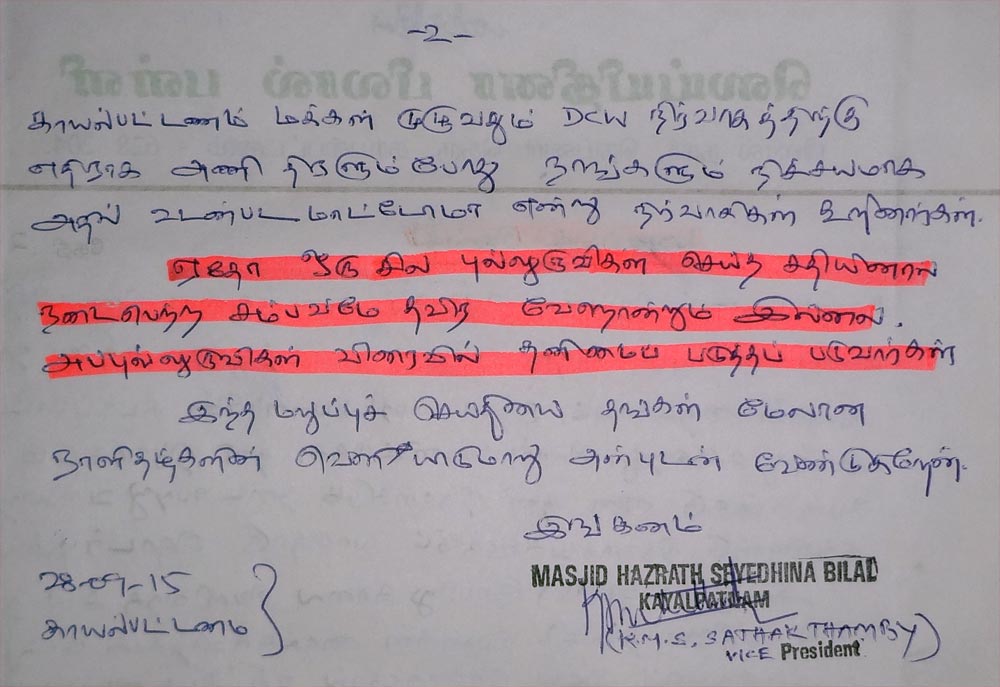 -2-
காயல்பட்டணம் மக்கள் முழுவதும் DCW நிர்வாகத்திற்கு
எதிராக அணி திரளும்போது நாங்களும் நிச்சயமாக
அதில் உடன்பட மாட்டோமா என்று நிர்வாகிகள் கூறினார்கள்.
ஏதோ ஒரு சில புல்லுருவிகள் செய்த சதியினால்
நடைபெற்ற சம்பவமே தவிர வேறொன்றும் இல்லை.
அப்புல்லுருவிகள் விரைவில் தனிமைப் படுத்தப் படுவார்கள்
இந்த மறுப்புச் செய்தியை தங்கள் மேலான
நாளிதழ்களில் வெளியிடுமாறு அன்புடன் வேண்டுகிறேன்.
இங்கனம்
28-09-15
காயல்பட்டணம்
MASJID HAZRATH SEYEDHINA BILAL
KAYALPATNAM
(K.M.S. SATHAK THAMBY)
VICE President